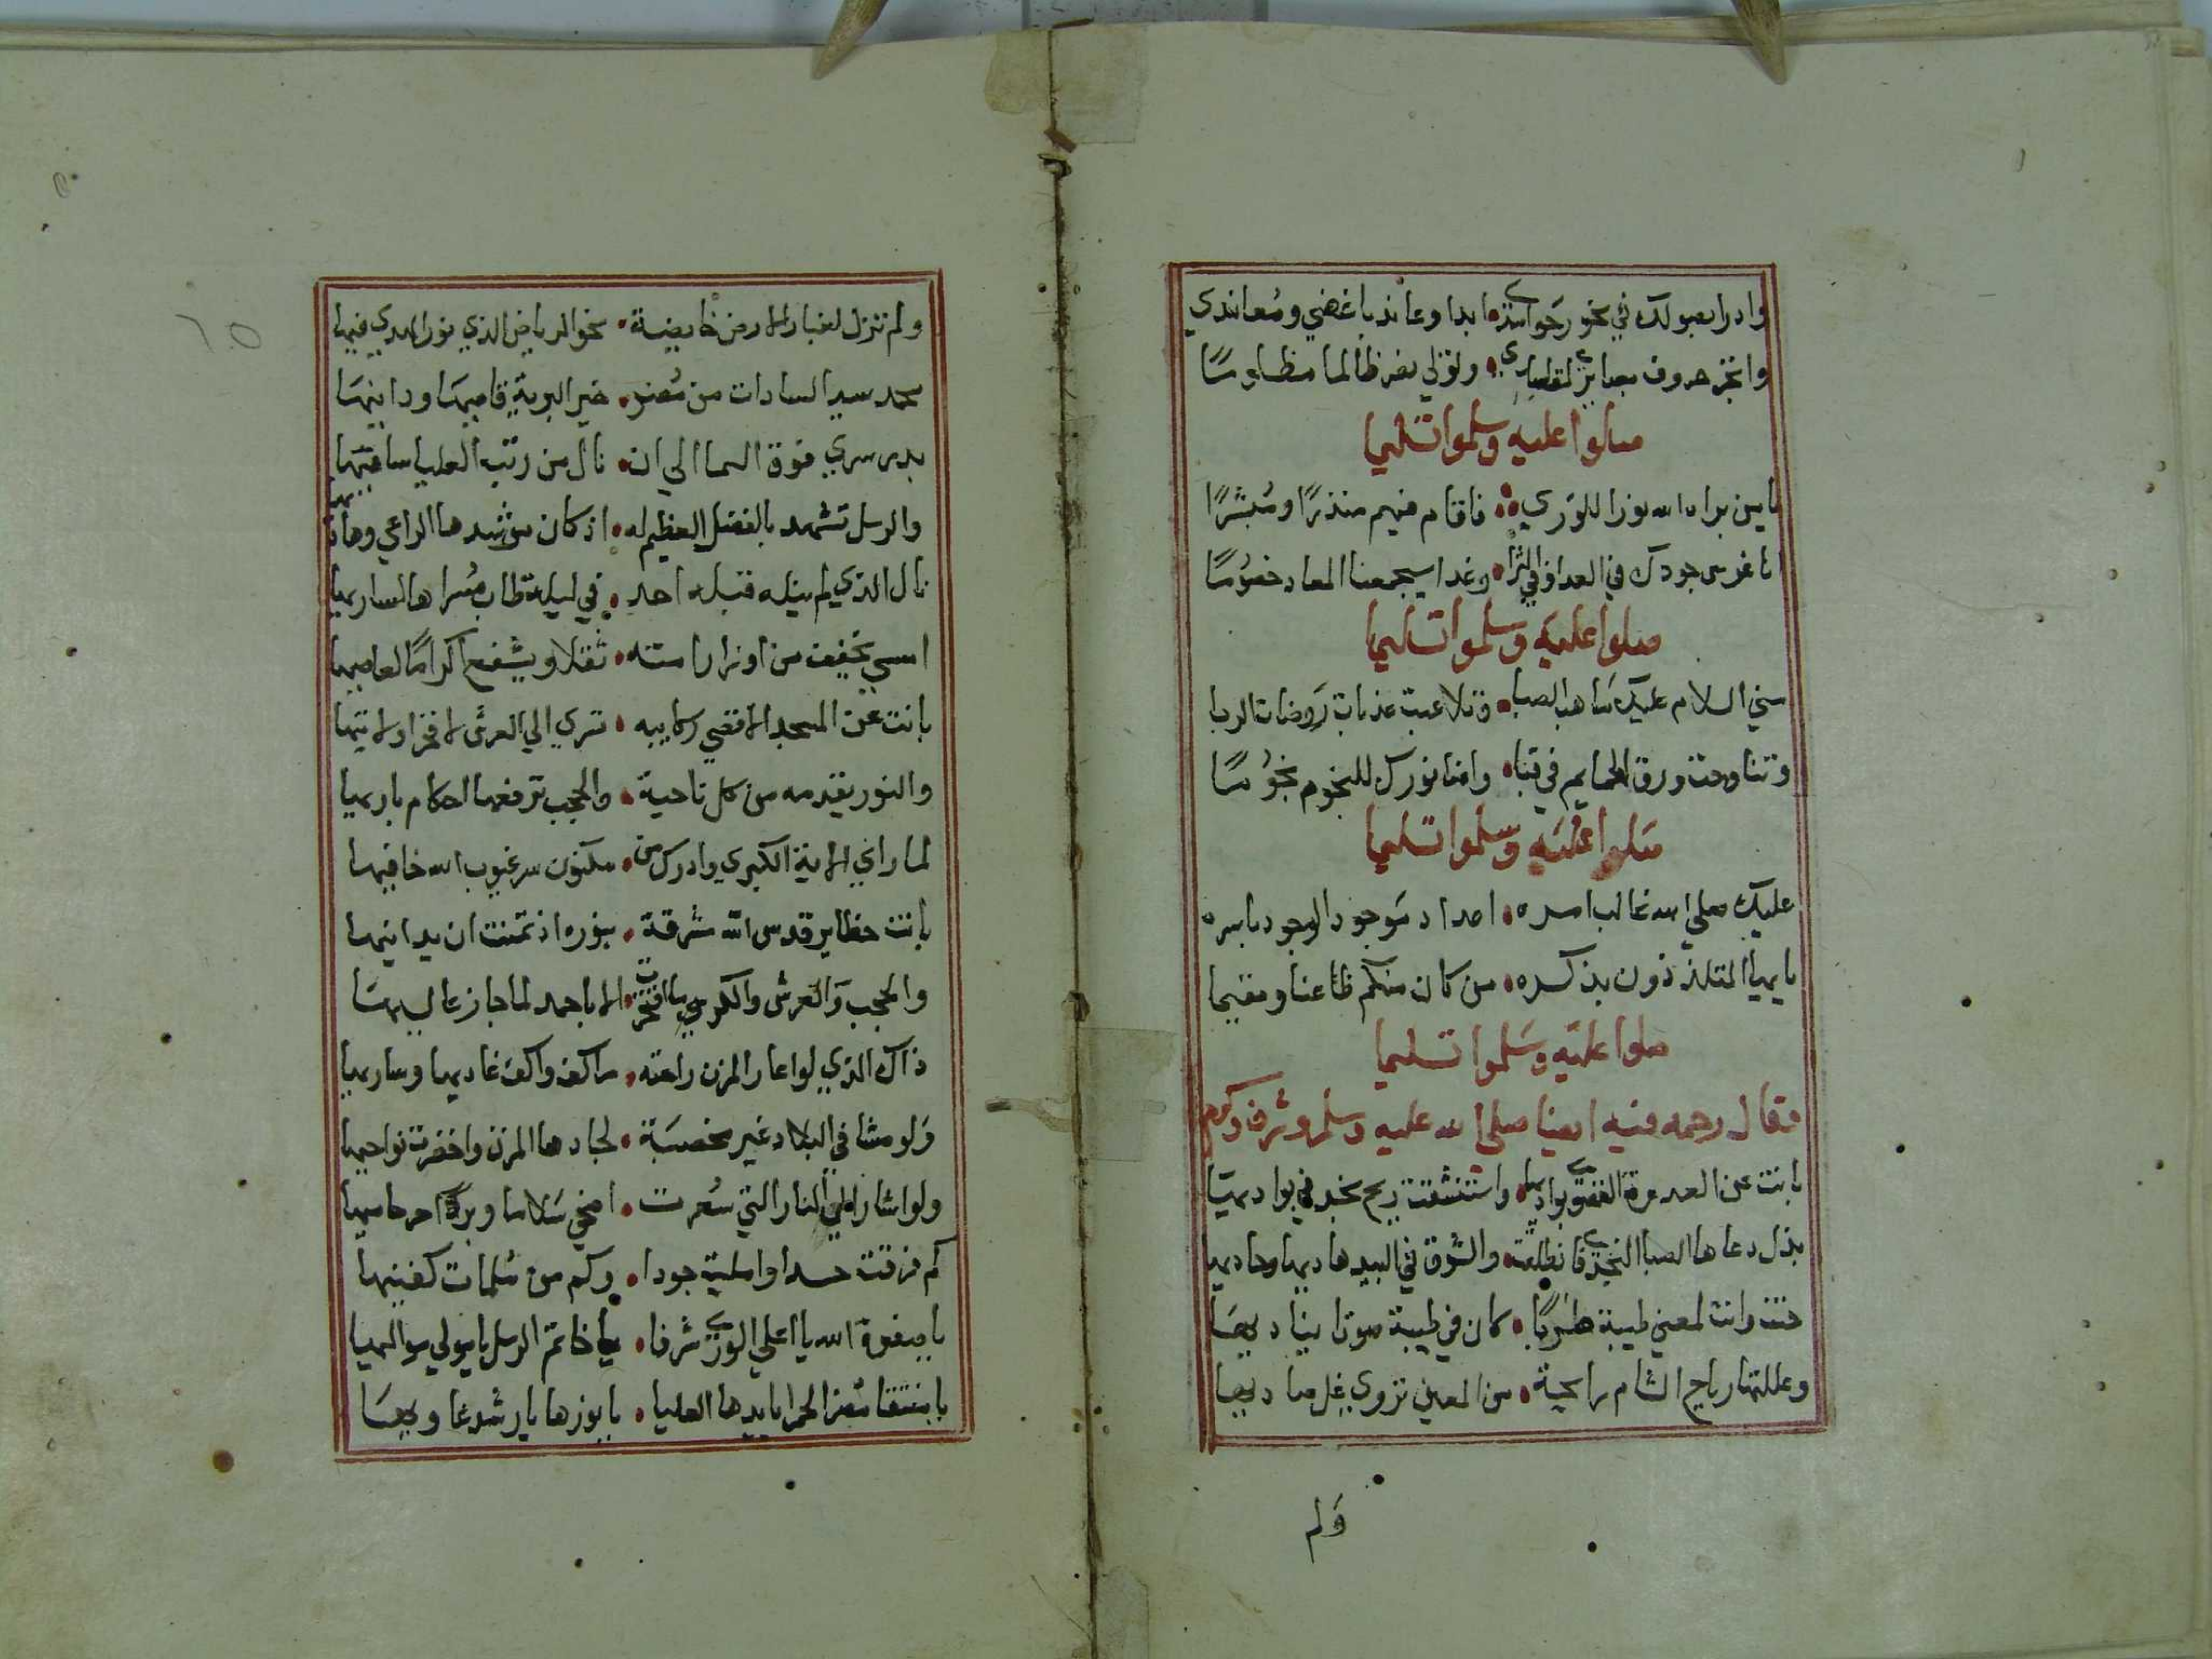 وادرا بصولك في نحور حواسدي ابدا وعاند باغضي ومعاندي
صلوا عليه وسلموا تسليما
يا من براه الله نورا للوري فاقام فيهم منذرًا ومبشرًا
انا غرس جودك في العدا وفي الثرا وغدا سيجمعنا المعاد خصومًا
صلوا عليه وسلموا تسليما
سني السلام عليك ما هب الصبا وتلاعبت عذبات روضات الربا
وتناوحت ورق الحمايم في قبا واضا نورك للنجوم نجومًا
صلوا عليه وسلموا تسليما
عليك صلي الله غالب امره اعداد موجود الوجود باسره
يا ايها المتلذذون بذكره من كان منكم ظاعنا ومقيما
صلوا عليه وسلموا تسليما
فقال رحمه فيه ايضا صلى الله عليه وسلم وشرف وكرم
بانت عن العدوة القصوي بواديها واستنشقت ريح نجد في بواديها
بذل دعاها الصبا النجدي فانطلقت والشوق في البيد هاديها وحاديها
حنت وانت لمعني طيبة طربًا كان في طيبة صوتا يناديها
وعللتها رياح الشام رايحية من المعين تروي غل صاديها
ولم
ولم تزل لغبار الارض خايضة نحو الرياض الذي نور الهدي فيها
محمد سيد السادات من مضر خير البرية قاصيها ودانيها
بدر سري فوق السما الي ان نال من رتب العليا ساميها
والرسل تشهد بالفضل العظيم له اذ كان مرشدها الراعي وهاديها
نال الذي لم ينله قبله احد في ليلة طاب مسراها لساريها
امسي يخفف من اوزار امته ثقلا ويشفع اكرامًا لعاصيها
بانت عن المسجد الاقصي ركايبه تسري الي العرش لا فخرا ولا تيها
والنور يقدمه من كل ناحية والحجب ترفعها احكام باريها
لما راي الاية الكبري وادرك من مكنون سر غيوب الله خافيها
باتت حظاير قدس الله مشرقة بنوره اذ تمنت ان يدانيها
والحجب والعرش والكرسي ما افتخرت الا باحمد لما جاز عاليها
ذاك الذي لو اعار المزن راحته ما كف واكف غاديها وساريها
ولو مشا في البلاد غير مخصبة لجادها المزن واخضرت نواحيها
ولو اشار الي النار التي سعرت اضحي سلاما وبردًا حر حاميها
كم فرقت حسدا واصلية جودا وكم من سلمات كفينها
يا صفوة الله يا اعلي الوري شرفا يا خاتم الرسل يا مولي مواليها